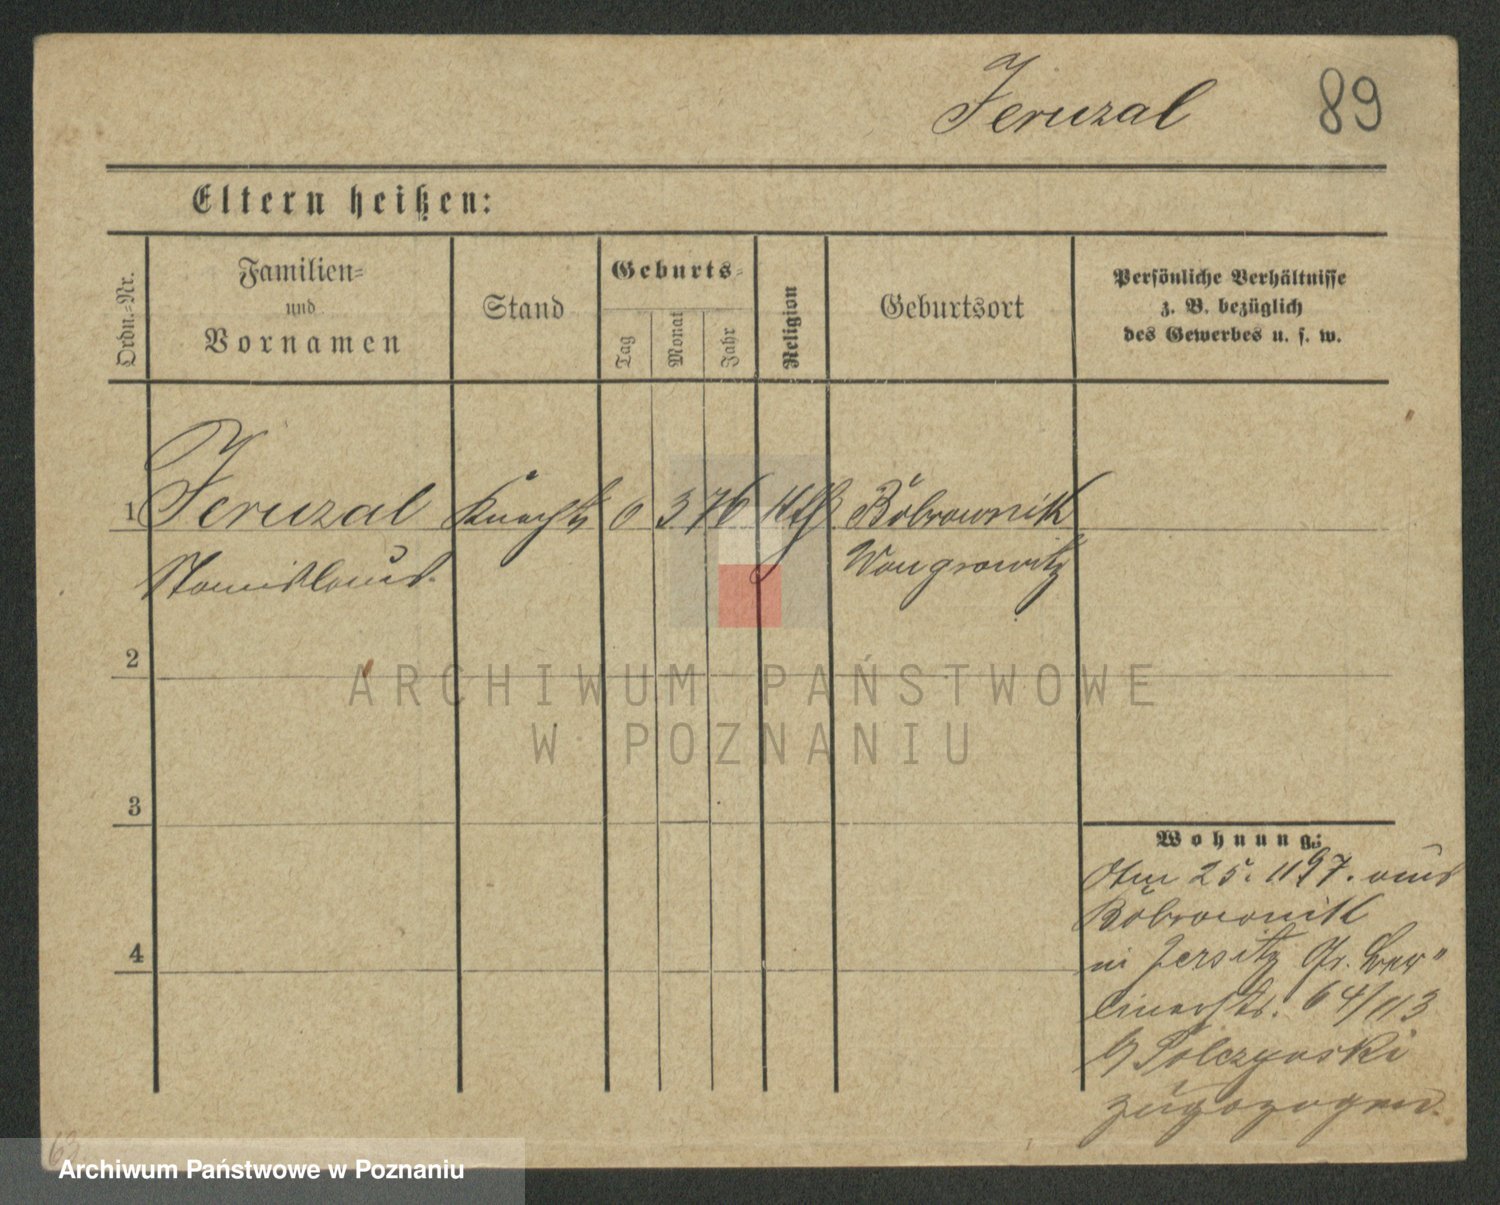 Jeruzal 89
Eltern heißen:
Ordn.-Nr.
Familien-
und
Vornamen
Stand
Geburts-
Tag
Monat
Jahr
Religion
Geburtsort
Persönliche Verhältnisse
z. B. bezüglich
des Gewerbes u. s. w.
1 Jeruzal Knecht 0 3 76 Kth Bobrownik
Stanislaus. Wongrowitz
2
ARCHIWUM PAŃSTWOWE
W POZNANIU
3
4
Wohnung:
25. 11 97. aus
Bobrownik
in Jersitz Gr. Ber"
linerstr. 64/113
Polczynski
zugezogen.
63.
Archiwum Państwowe w Poznaniu